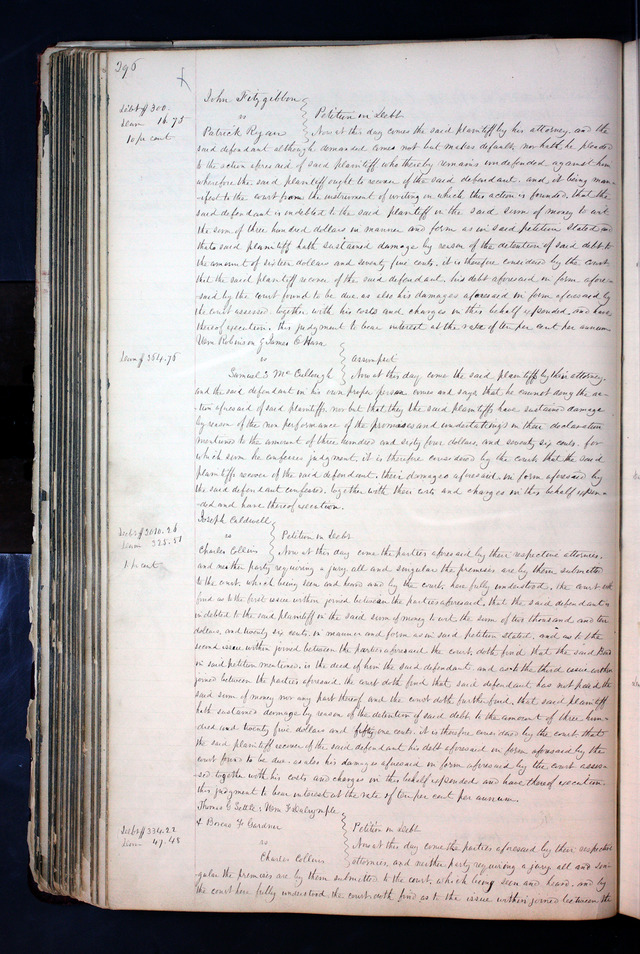 396
John Fitzgibbon
Debt $300.
vs Petition in Debt
Dam 16.75
Patrick Ryan Now at this day comes the said plaintiff by his attorney, and the
10 pr cent
said defendant although demanded comes not but makes default, nor hath he pleaded
to the action aforesaid of said plaintiff who thereby remains undefended against him
wherefore the said plaintiff ought to recover of the said defendant, and it being man-
ifest to the court from the instrument of writing on which this action is founded, that the
said defendant is indebted to the said plaintiff in the said sum of money to wit
the sum of three hundred dollars in manner and form as in said petition stated and
that said plaintiff hath sustained damage by reason of the detention of said debt to
the amount of sixteen dollars and seventy five cents. it is therefore considered by the court
that the said plaintiff recover of the said defendant, his debt aforesaid in form afore-
said by the court found to be due, as also his damages aforesaid in form aforesaid by
the court assessed, together with his costs and charges in this behalf expended, and have
thereof execution. this judgment to bear interest at the rate of ten per cent per annum
Wm Robinson & James O Hara
Dam $364.76
vs assumpsit
Samuel McCullough Now at this day, come the said plaintiffs by their attorney,
and the said defendant in his own proper person comes and says that he cannot deny the ac-
tion aforesaid of said plaintiffs, nor but that they the said plaintiffs have sustained damage
by reason of the non performance of the promises and undertakings in their declaration
mentioned to the amount of three hundred and sixty four dollars, and seventy six cents, for
which sum he confesses judgment, it is therefore considered by the court, that the said
plaintiffs recover of the said defendant, their damages aforesaid, in form aforesaid by
the said defendant confessed, together with their costs and charges in this behalf expen-
ded and have thereof execution.
Joseph Caldwell
Debt $2010.26
vs Petition in Debt
Dam 325.51
Charles Collins Now at this day come the parties aforesaid by their respective attornies,
10 pr cent
and neither party requiring a jury, all and singular the premises are by them submitted
to the court, which being seen and heard and by the court, here fully understood, the court doth
find as to the first issue within joined between the parties aforesaid, that the said defendant is
indebted to the said plaintiff in the said sum of money to wit, the sum of two thousand and ten
dollars, and twenty six cents, in manner and form as in said petition stated, and as to the
second issue within joined between the parties aforesaid the court doth find that the said
in said petition mentioned, is the deed of him the said defendant, and as to the third issue within
joined between the parties aforesaid, the court doth find that said defendant has not paid the
said sum of money nor any part thereof and the court doth further find, that said plaintiff
hath sustained damage by reason of the detention of said debt to the amount of three hun-
dred and twenty five dollars and fifty one cents. it is therefore considered by the court that
the said plaintiff recover of the said defendant his debt aforesaid in form aforesaid by the
court found to be due, as also his damages aforesaid in form aforesaid by the court asses-
sed together with his costs and charges in this behalf expended and have thereof execution.
this judgment to bear interest at the rate of ten per cent per annum.
Thomas G Settle, Wm F Dalrymple
Debt $334.22
& F Gardner Petition in Debt
Dam 47.48
vs Now at this day come the parties aforesaid by their respective
Charles Collins attornies, and neither party requiring a jury, all and sin-
gular the premises are by them submitted to the court, which being seen and heard, and by
the court here fully understood, the court doth find as to the issue within joined between the